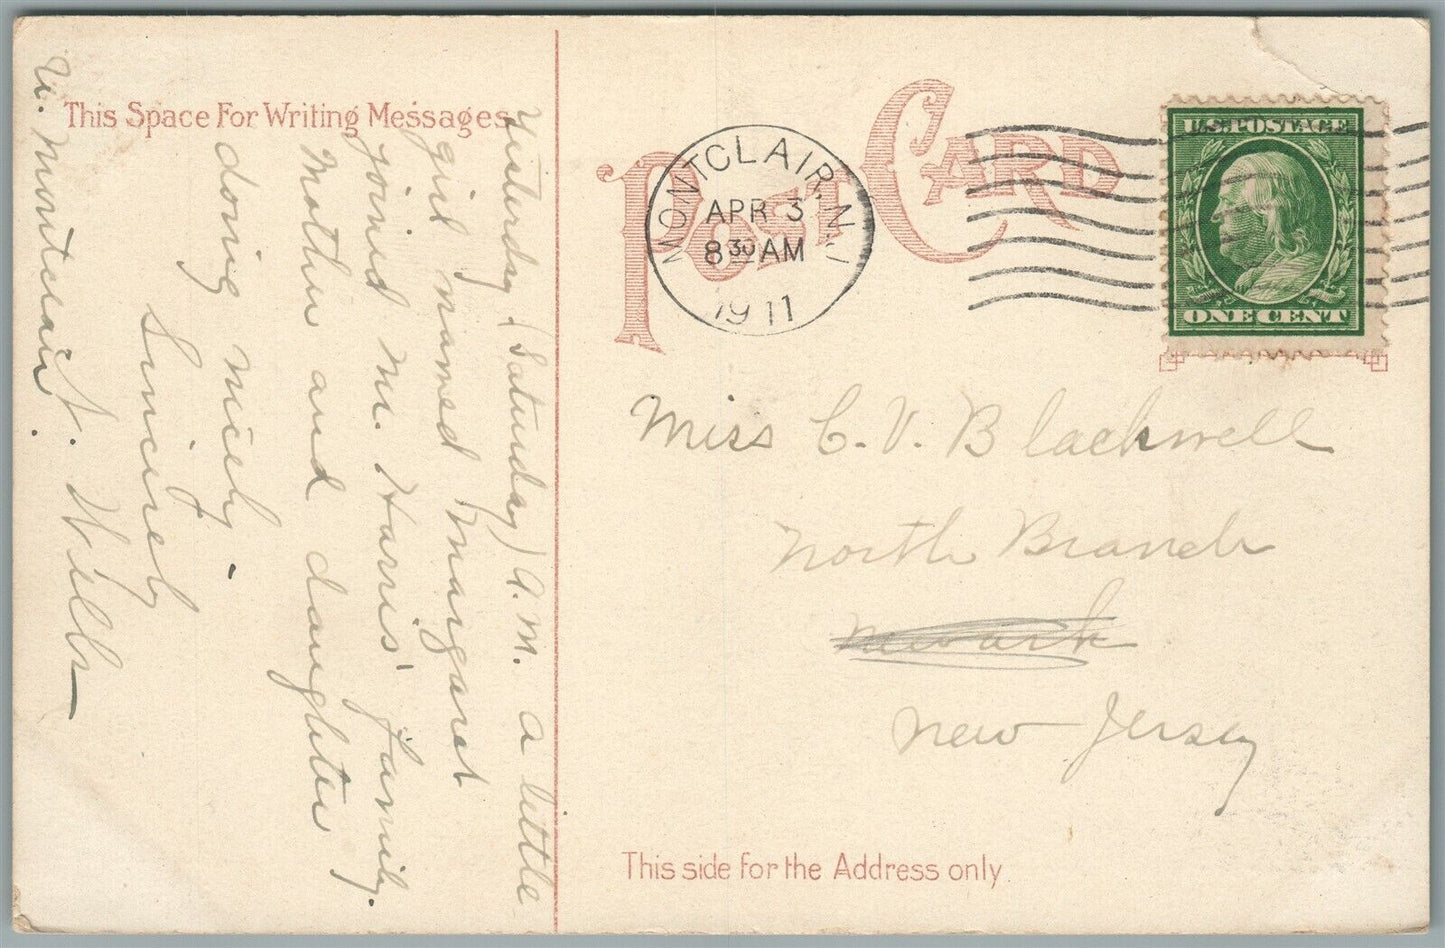 This Space For Writing Messages
Yesterday (Saturday) A.M. a little
girl named Margaret
joined Mr. Harris' family.
Mother and daughter
doing nicely.
Sincerely
J. Wills
U. Montclair.
POST CARD
MONTCLAIR, N.J.
APR 3
8 30 AM
1911
U.S. POSTAGE
ONE CENT
Miss C. V. Blackwell
North Branch
Newark
New Jersey
This side for the Address only